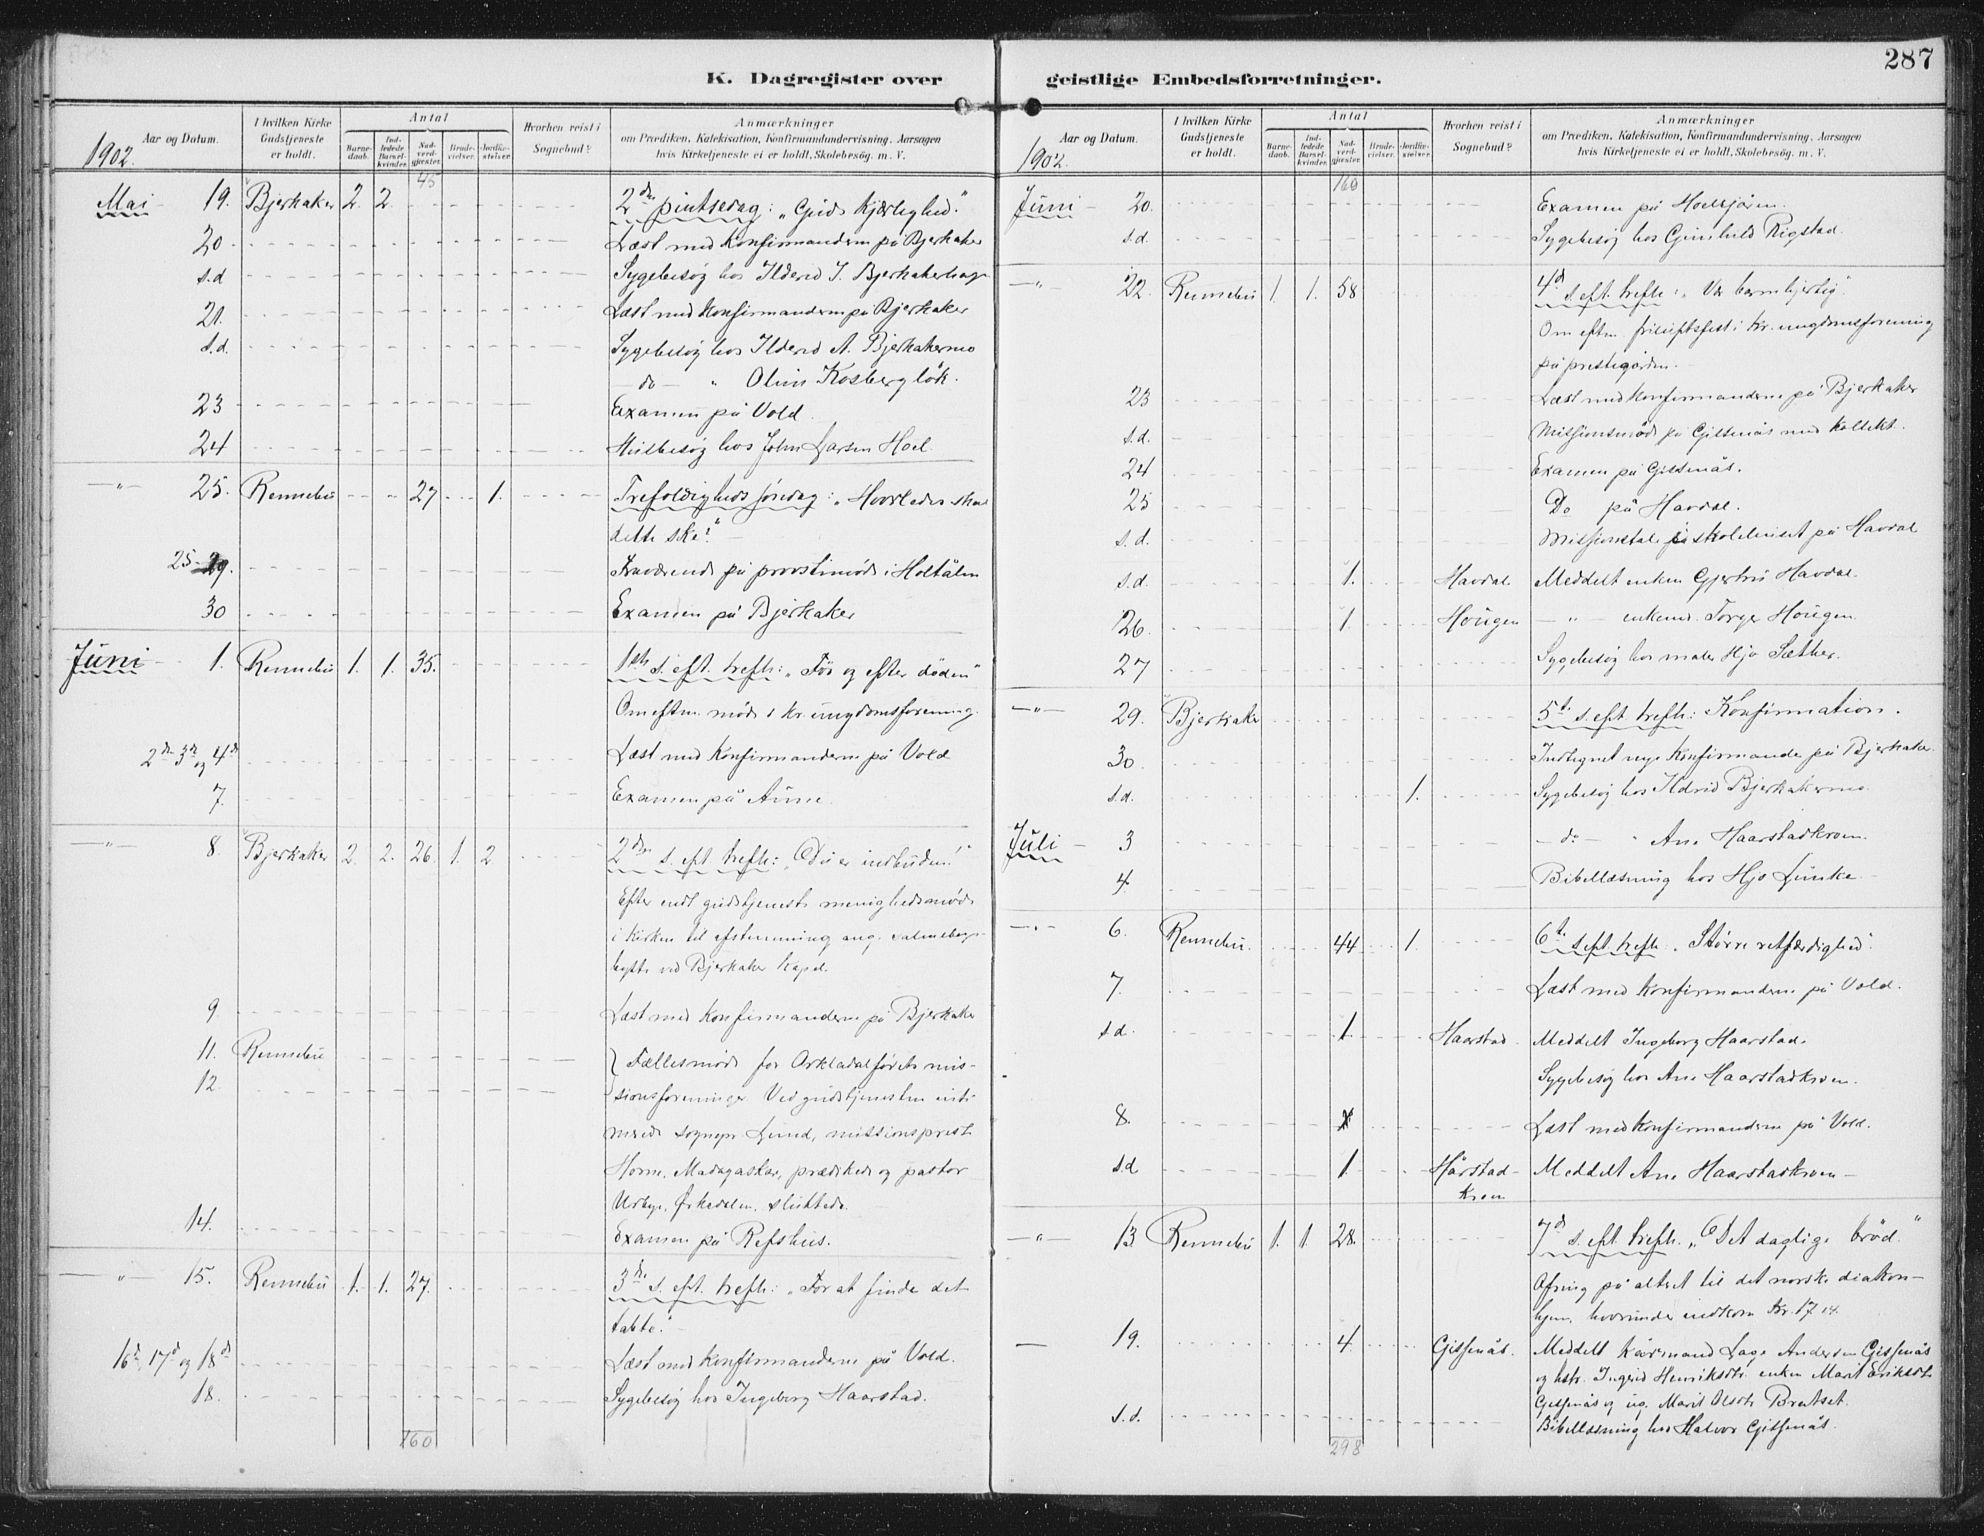 287
K. Dagregister over
Aar og Datum.
I hvilken Kirke Gudstjeneste er holdt.
Antal
Barnedaab.
Indledede Barselkvinder.
Nadverdgjester.
Brudevielser.
Jordfæstelser.
Hvorhen reist i Sognebud?
Anmærkninger
om Prædiken, Katekisation, Konfirmandundervisning, Aarsagen
hvis Kirketjeneste ei er holdt, Skolebesøg. m. V.
1902.
45
Mai 19. Bjerkaker 2 2 2den pintsedag: "Guds kjærlighed."
20 Læst med konfirmanderne på Bjerkaker
s.d Sygebesøg hos Ilderid I. Bjerkakerhage
21. Læst med konfirmanderne på Bjerkaker
s.d. Sygebesøg hos Ilderid A. Bjerkakermo
- do - " Oline Kosbergløk.
23 Examen på Vold.
24 Husbesøg hos John Larsen Hoel.
-"- 25. Rennebu 27 1. Trefoldighedssøndag: "Hvorledes skal
dette ske?"
25-29. Fraværende på provstimøde i Holtålen
30 Examen på Bjerkaker
Juni 1. Rennebu 1. 1. 35. 1ste s. eft. trefh: "Før og efter døden"
Om eftm. møde i kr. ungdomsforening.
2den 3die og 4de Læst med konfirmanderne på Vold
7. Examen på Aune.
-"- 8. Bjerkaker 2. 2. 26. 1. 2 2den s. eft. trefh: "Du er indbuden!"
Efter endt gudstjeneste menighedsmøde
i kirken til afstemning ang. salmebogs-
bytte ved Bjerkaker kapel.
9 Læst med konfirmanderne på Bjerkaker
11. Rennebu Fællesmøde for Orkladalførets mis-
12. sionsforeninger. Ved gudstjenesten inti-
merede sognepr. Lund, missionsprest
Horne, Madagaskar, prædikede og pastor
Urbye, Ørkedalen, sluttede.
14. Examen på Refshus.
-"- 15. Rennebu 1. 1. 27. 3die s. eft. trefh: "For at finde det
tabte."
16de, 17de og 18de Læst med konfirmanderne på Vold.
18. Sygebesøg hos Ingeborg Haarstad.
160
geistlige Embedsforretninger.
Aar og Datum.
I hvilken Kirke Gudstjeneste er holdt.
Antal
Barnedaab.
Indledede Barselkvinder.
Nadverdgjester.
Brudevielser.
Jordfæstelser.
Hvorhen reist i Sognebud?
Anmærkninger
om Prædiken, Katekisation, Konfirmandundervisning, Aarsagen
hvis Kirketjeneste ei er holdt, Skolebesøg. m. V.
1902.
160
Juni - 20. Examen på Hoelsjøren.
s.d. Sygebesøg hos Gunhild Rigstad.
-"- 22. Rennebu 1. 1. 58 4de s. eft. trefh: "Vær barmhjertig".
Om eftm. friluftsfest i kr. ungdomsforening
på prestegården.
23 Læst med konfirmanderne på Bjerkaker
s.d. Missionsmøde på Gissenås med kollekt.
24 Examen på Gissenås.
25 Do på Havdal.
s.d. Missionstale i skolehuset på Havdal
s.d. 1. Havdal Meddelt enken Gjertru Havdal.
26. 1. Hougen - " - enkem. Torger Hougen.
27 Sygebesøg hos maler Hjo Sæther.
-"- 29. Bjerkaker 5te s. eft. trefh: Konfirmation.
30. Indtegnet nye konfirmander på Bjerkaker.
s.d. 1. Sygebesøg hos Ildrid Bjerkakermo.
Juli - 3 - do - " Ane Haarstadkroen.
4. Bibellæsning hos Hjo Lunke
-"- 6. Rennebu. 44 1. 6te s. eft. trefh. "Større retfærdighed".
7. Læst med konfirmanderne på Vold.
s.d. 1. Haarstad Meddelt Ingeborg Haarstad.
Sygebesøg hos Ane Haarstadkroen.
8. Læst med konfirmanderne på Vold.
s.d 1 Hårstad-
kroen Meddelt Ane Haarstadkroen -
-"- 13 Rennebu 1. 1 28. 7de s. eft. trefh. "Det daglige brød"
Ofring på altret til det norske diakon-
hjem, hvorunder indkom Kr. 17.14.
- 19. 4. Gissenås. Meddelt kårmand Lage Andersen Gissenås
og hstr. Ingrid Henriksdtr. enken Marit Eriksdtr.
Gissenås og ug. Marit Olsdtr. Bratset.
s.d. Bibellæsning hos Halvor Gissenås.
298